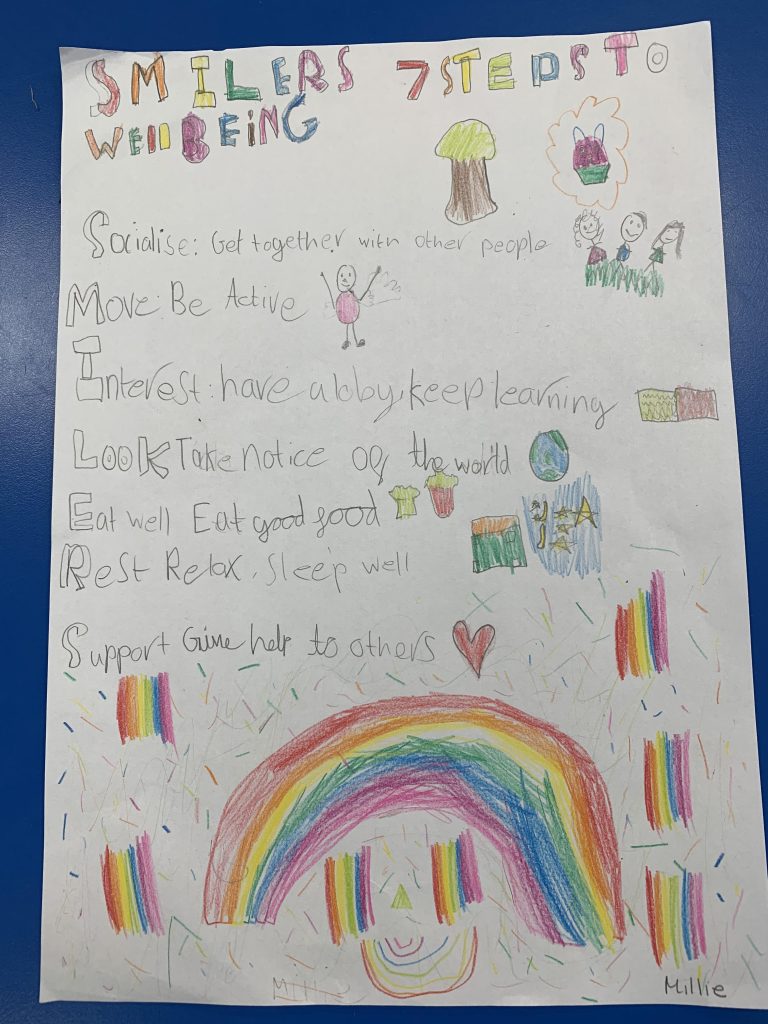 SMILERS 7 STEPS TO
WEllBEiNG
Socialise: Get together with other people
Move: Be Active
Interest: have a bby, keep learning
LOOK Take notice of the world
Eat well Eat good food
Rest Relax, Sleep well
Support Give help to others
Mill
Millie